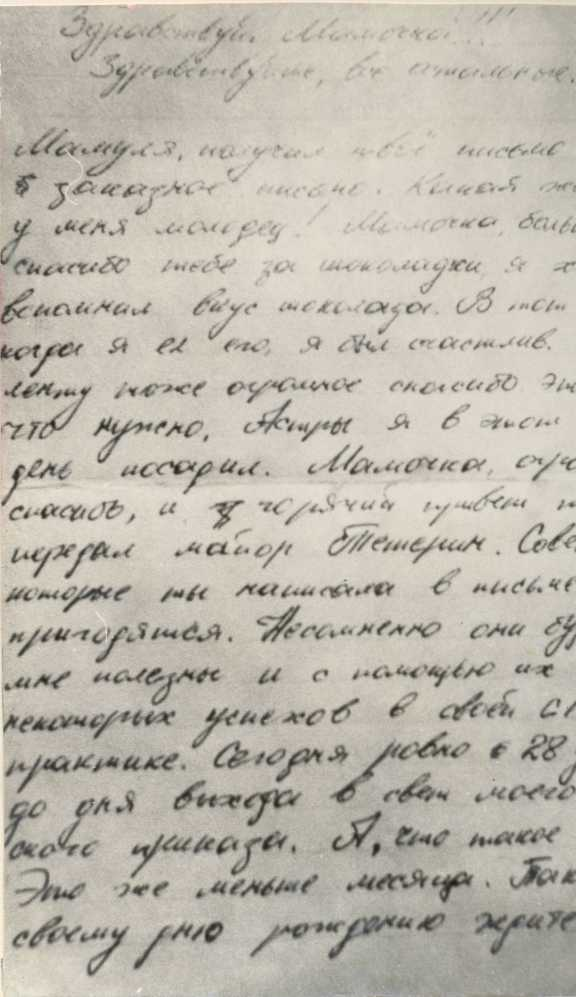 Здравствуй Мамочка!!!
Здравствуйте, все остальные.
Мамуля, получил твоё письмо
заказное письмо. Какой же
у меня молодец! Мамочка, боль
спасибо тебе за шоколадки, я х
вспомнил вкус шоколада. В тот
когда я ел его, я был счастлив.
ленту тоже огромное спасибо эт
что нужно. Астры я в этот
день посадил. Мамочка, огро
спасибо, и горячий привет т
передал майор Тетерин. Сове
которые ты написала в письме
пригодятся. Несомненно они бу
мне полезны и с помощью их
некоторых успехов в своей
практике. Сегодня ровно 28
до дня выхода в свет моего
ского приказа. А, что такое
Это же меньше месяца. Так
своему дню рождению ждите